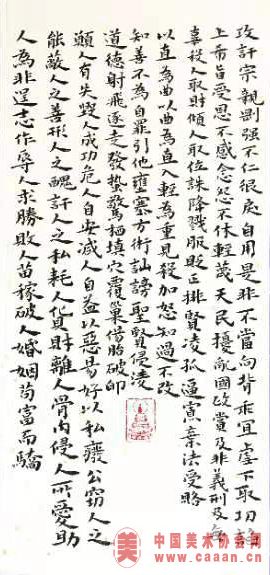 攻訐宗親剛强不仁狠戾自用是非不當向背乖宜虐下取功諂
上希旨受恩不感念怨不休輕蔑天民擾亂國政賞及非義刑及無
辜殺人取財傾人取位誅降戮服貶正排賢凌孤逼寡棄法受賂
以直為曲以曲為直入輕為重見殺加怒知過不改
知善不為自罪引他壅塞方術訕謗聖賢侵凌
道德射飛逐走發蟄驚棲填穴覆巢傷胎破卵
願人有失毀人成功危人自安減人自益以惡易好以私廢公竊人之
能蔽人之善形人之醜訐人之私耗人貨財離人骨肉侵人所愛助
人為非逞志作辱人求勝敗人苗稼破人婚姻苟富而驕
中国美术协会网
www.caaan.cn